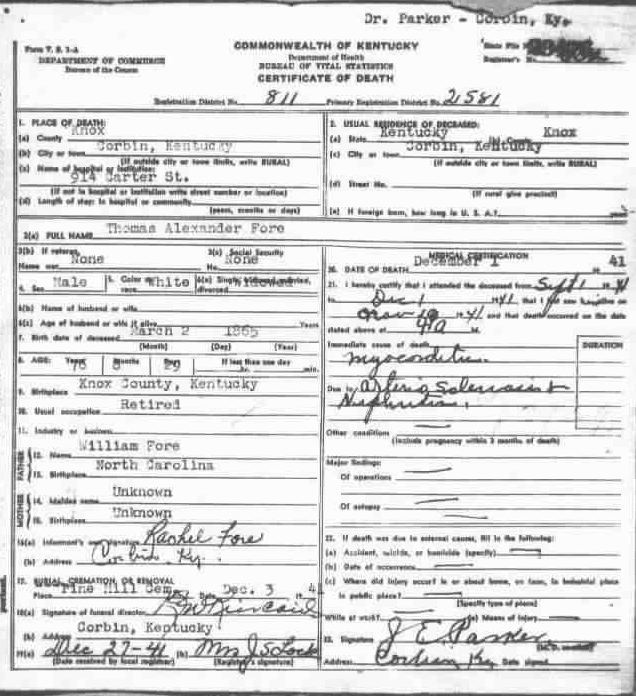 Dr. Parker - Corbin, Ky.
Form V. S. 1-A
DEPARTMENT OF COMMERCE
Bureau of the Census
COMMONWEALTH OF KENTUCKY
Department of Health
BUREAU OF VITAL STATISTICS
CERTIFICATE OF DEATH
State File No.
Registrar's No.
Registration District No. 811 Primary Registration District No. 2581
1. PLACE OF DEATH:
(a) County Knox
(b) City or town Corbin, Kentucky
(If outside city or town limits, write RURAL)
(c) Name of hospital or institution:
914 Carter St.
(If not in hospital or institution write street number or location)
(d) Length of stay: In hospital or community
(years, months or days)
2. USUAL RESIDENCE OF DECEASED:
(a) State Kentucky (b) County Knox
(c) City or town Corbin, Kentucky
(If outside city or town limits, write RURAL)
(d) Street No.
(If rural give precinct)
(e) If foreign born, how long in U. S. A.? years
3(a) FULL NAME Thomas Alexander Fore
3(b) If veteran, Name war None
3(c) Social Security No. None
4. Sex Male 5. Color or race White 6(a) Single, widowed, married, divorced Widowed
6(b) Name of husband or wife
6(c) Age of husband or wife if alive Years
7. Birth date of deceased March 2 1865
(Month) (Day) (Year)
8. AGE: Years 76 Months 8 Days 29 If less than one day hr. min.
9. Birthplace Knox County, Kentucky
10. Usual occupation Retired
11. Industry or business
FATHER
12. Name William Fore
13. Birthplace North Carolina
MOTHER
14. Maiden name Unknown
15. Birthplace Unknown
16(a) Informant's own signature Rachel Fore
(b) Address Corbin Ky.
17. BURIAL, CREMATION, OR REMOVAL
Place Pine Hill Cem. Date Dec. 3 1941
18(a) Signature of funeral director
(b) Address Corbin, Kentucky
19(a) Dec 27-41 (b) Mrs J S Lock
(Date received by local registrar) (Registrar's signature)
MEDICAL CERTIFICATION
20. DATE OF DEATH December 1 19 41
21. I hereby certify that I attended the deceased from Sept 1 1941
to Dec 1 1941, that I last saw him alive on
Nov 19 1941 and that death occurred on the date
stated above at 4 a M.
Immediate cause of death
DURATION
Myocarditis.
Due to Arterio Sclerosis &
Nephritis.
Other conditions
(Include pregnancy within 3 months of death)
Major findings:
Of operations
Of autopsy
22. If death was due to external causes, fill in the following:
(a) Accident, suicide, or homicide (specify)
(b) Date of occurrence
(c) Where did injury occur? in or about home, on farm, in industrial place
in public place?
(Specify type of place)
While at work? (e) Means of injury
23. Signature J E Parker
Address Corbin Ky Date signed